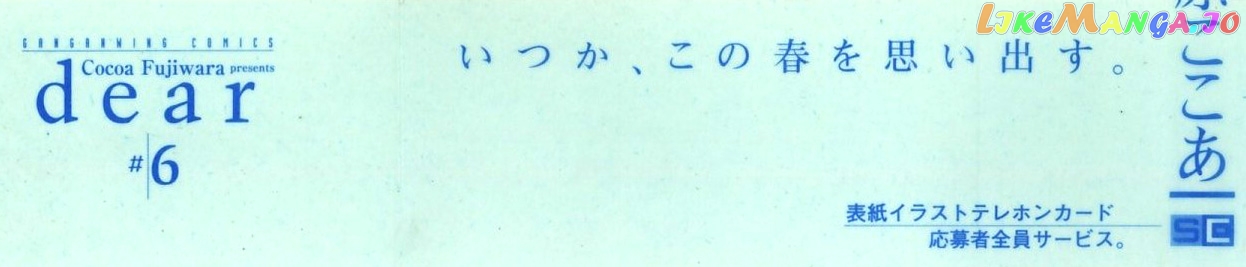 GANGANWING COMICS
Cocoa Fujiwara presents
dear
#6
いつか、この春を思い出す。
表紙イラストテレホンカード
応募者全員サービス。
原ここあ
SE
LIKEMANGA.IO